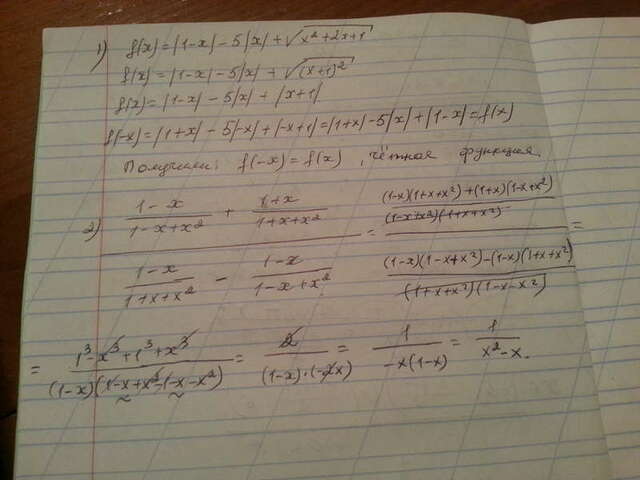 1) f(x)=|1-x|-5|x|+√(x²+2x+1)
f(x)=|1-x|-5|x|+√((x+1)²)
f(x)=|1-x|-5|x|+|x+1|
f(-x)=|1+x|-5|-x|+|-x+1|=|1+x|-5|x|+|1-x|=f(x)
Получили: f(-x)=f(x), чётная функция.
2) ((1-x)/(1-x+x²) + (1+x)/(1+x+x²)) / ((1-x)/(1+x+x²) - (1-x)/(1-x+x²)) = (((1-x)(1+x+x²)+(1+x)(1-x+x²))/((1-x+x²)(1+x+x²))) / (((1-x)(1-x+x²)-(1-x)(1+x+x²))/((1+x+x²)(1-x-x²))) =
= (1³-x³+1³+x³)/((1-x)(1-x+x²-1-x-x²)) = 2/((1-x)·(-2x)) = 1/(-x(1-x)) = 1/(x²-x).